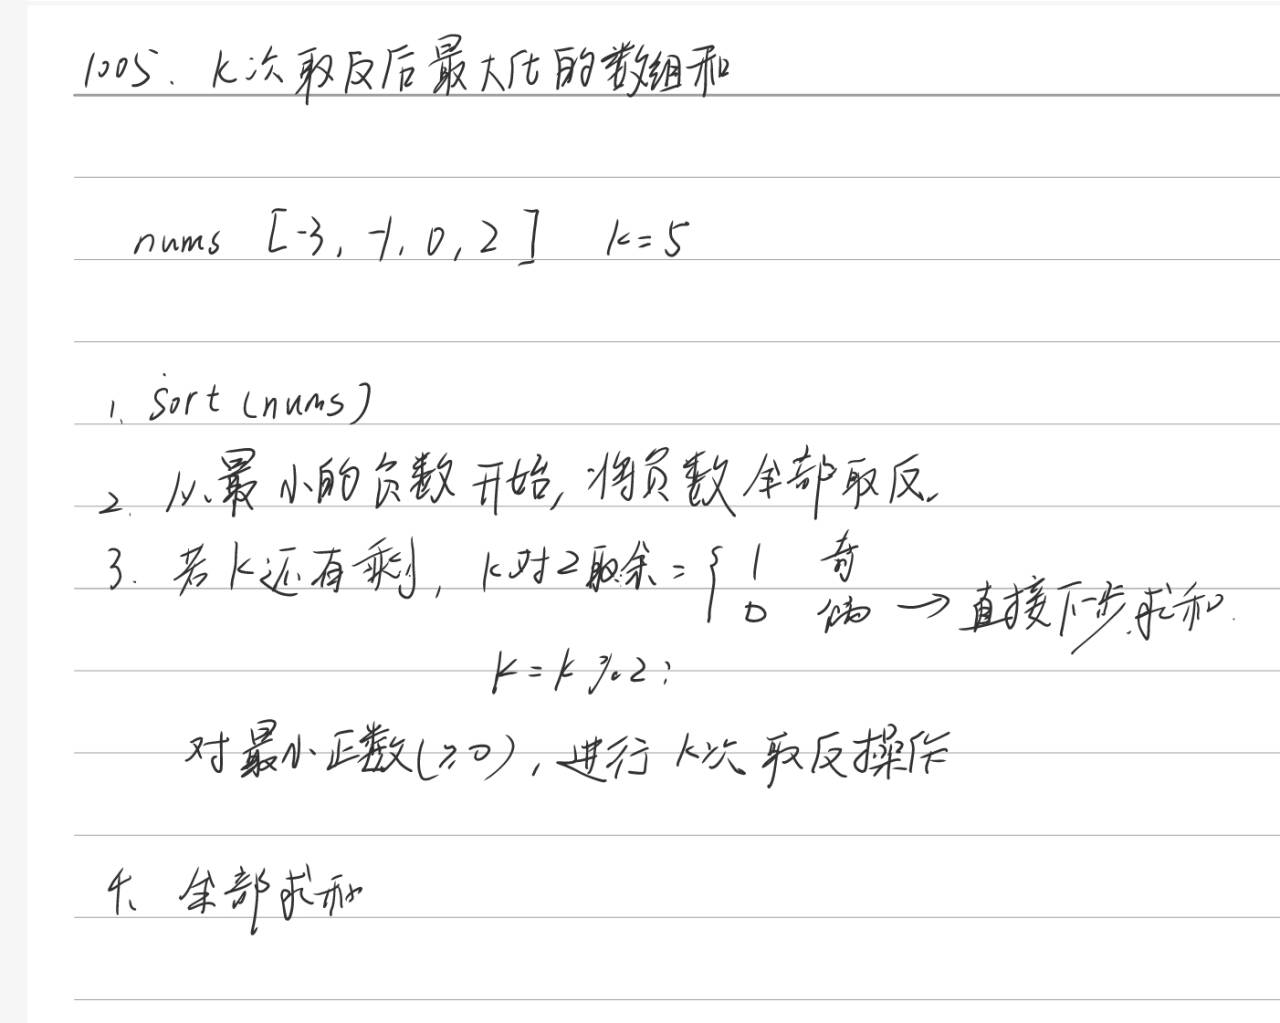 1005. K次取反后最大化的数组和
nums [-3, -1, 0, 2] k=5
1. sort(nums)
2. 从最小的负数开始, 将负数全部取反.
3. 若k还有剩, k对2取余 = { 1 奇
0 偶 → 直接下一步,求和.
k = k % 2;
对最小正数(≥0), 进行k次取反操作
4、全部求和